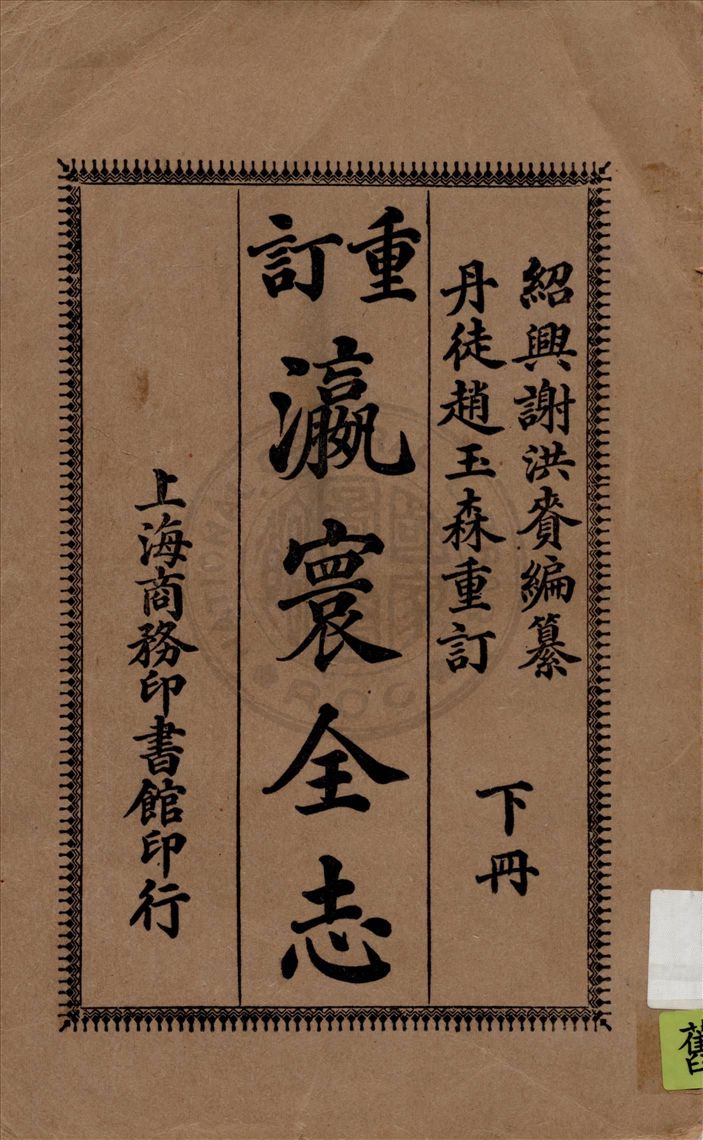 紹興謝洪賚編纂
丹徒趙玉森重訂
下冊
重訂
瀛寰全志
上海商務印書館印行
舊